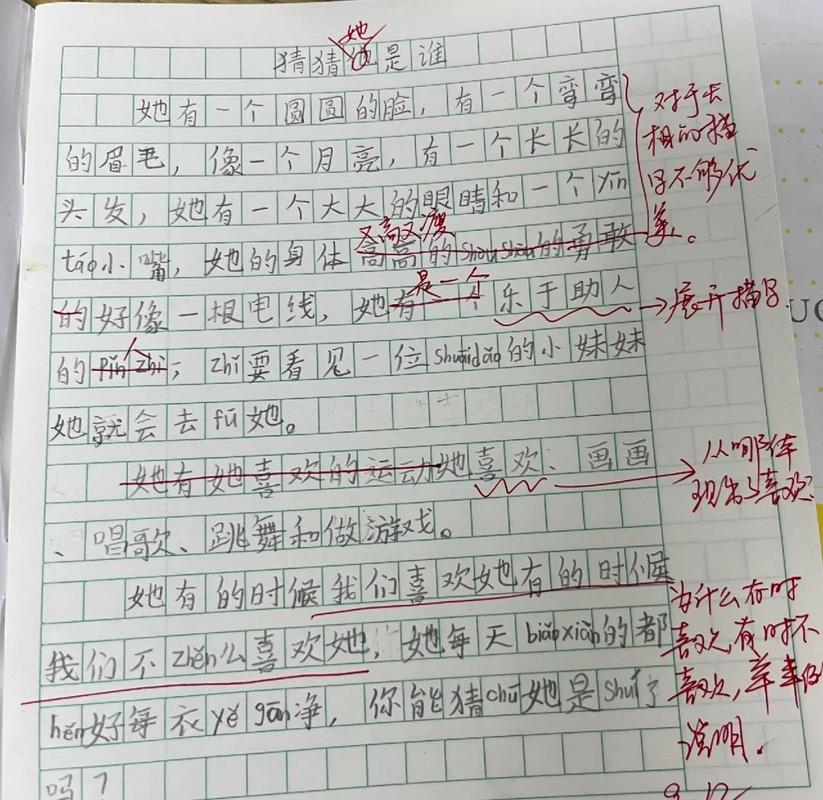 她
猜猜他是谁
她有一个圆圆的脸，有一个弯弯
的眉毛，像一个月亮，有一个长长的
头发，她有一个大大的眼睛和一个yīn
táo小嘴，她的身体高高的shòushòu的勇敢
又高又瘦
的好像一根电线，她有一个乐于助人
是一个
的pǐn zhì；zhǐ要看见一位shuāidǎo的小妹妹
她就会去fú她。
她有她喜欢的运动她喜欢、画画
、唱歌、跳舞和做游戏。
她有的时候我们喜欢她有的时候
我们不zhěn么喜欢她，她每天biǎoxiàn的都
hěn好每衣yě gān净，你能猜chū她是shuí了
吗？
对于长
相的描
写不够优
美。
展开描写
从哪体
现出喜欢
为什么有时
喜欢，有时不
喜欢，举事例
说明.